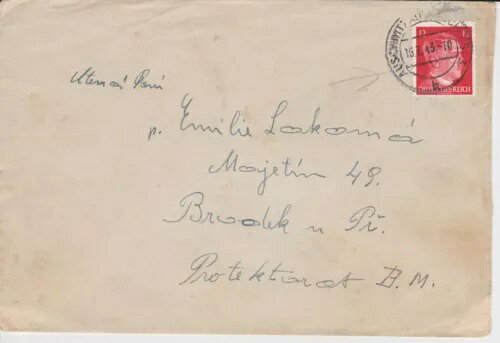 AUSCHWITZ
15.1.43.-10
12 12
DEUTSCHES REICH
p. Emilie Lakomá
Majetín 49.
Brodek u Př.
Protektorat B.M.